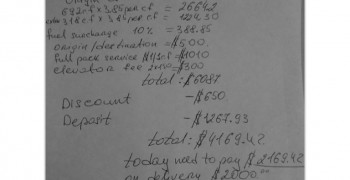 692cf x 3.85 per cf = 2664.2
extra 318 cf x 3.85 per cf = 1224.30
fuel surcharge 10% = 388.85
origin/destination = $500
full pack service $1/1cf = $1010
elevator fee = $300
total: $6087
Discount -$650
Deposit -$1267.93
total: $4169.42
today need to pay $2169.42
on delivery $2000